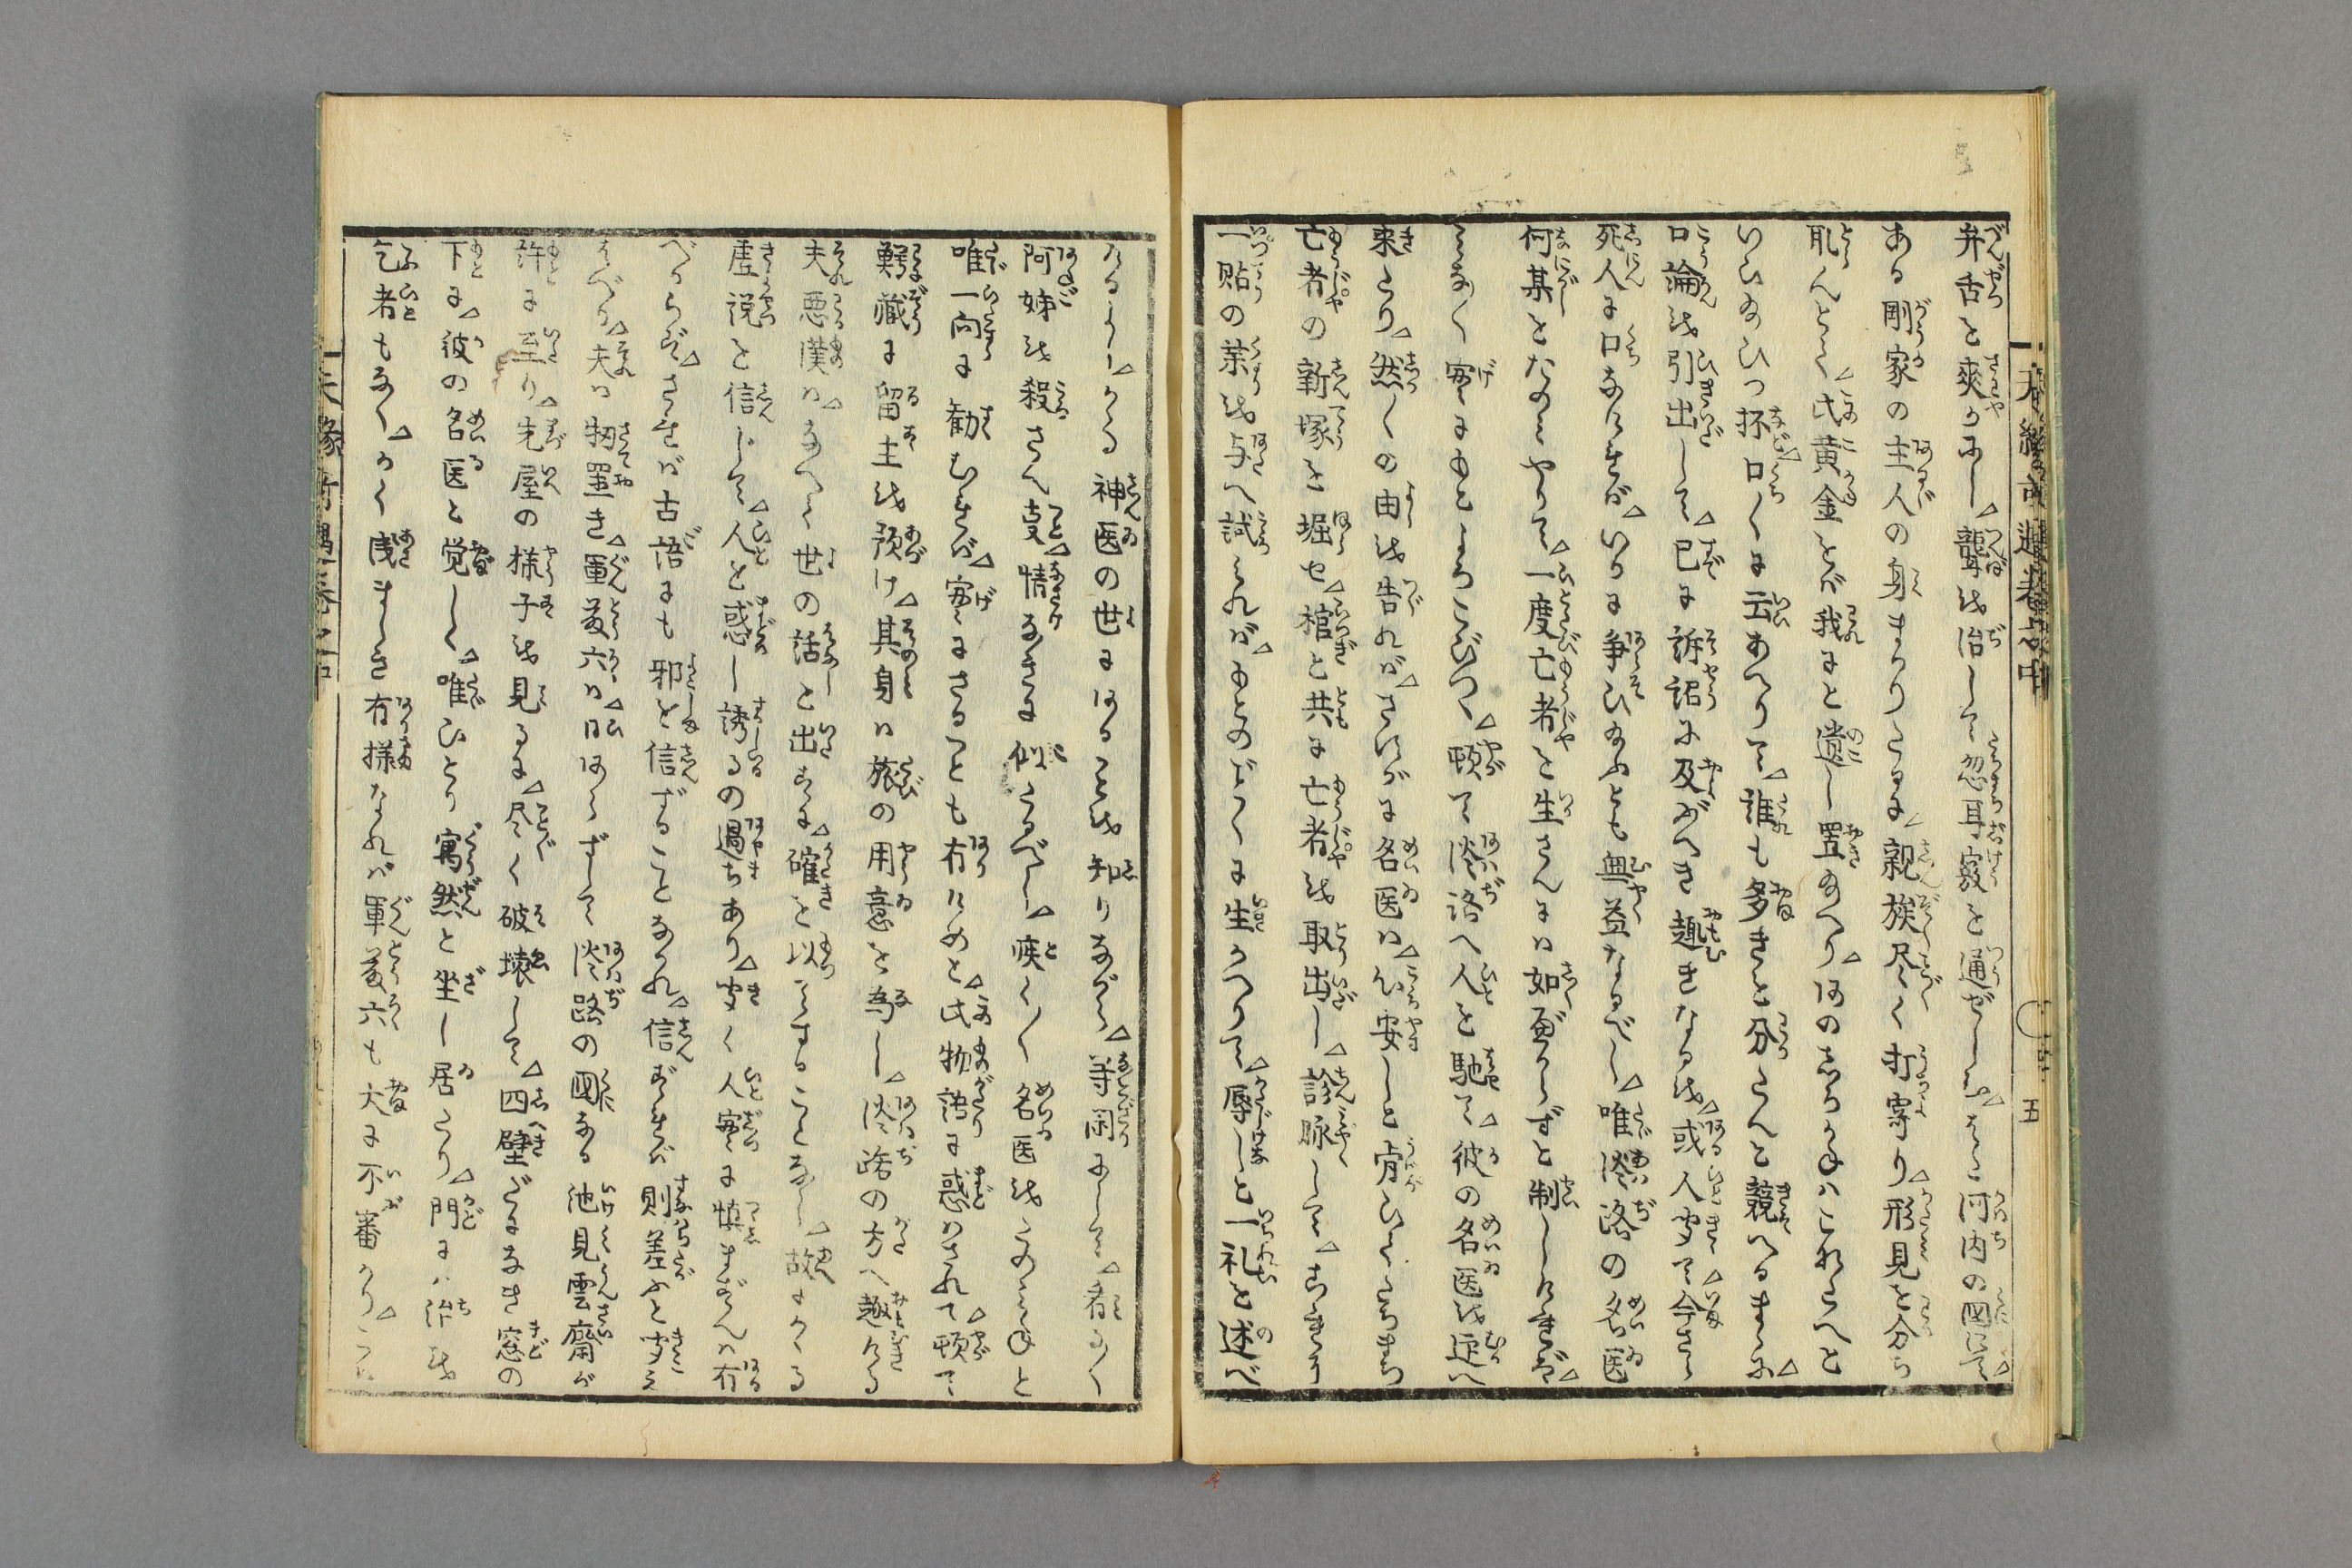 弁舌を爽かにし△聾を治して忽耳竅を通ぜしむ△又河内の国にて△
ある剛家の主人の身まかりたるに△親族尽く打寄り△形見を分ち
取んとて△此黄金をば我にと遺し置給へり△何のしろかねはこれこへと
いひ給ひつ抔△口〱に云あへりて△誰も多きを分たんと競へるまゝに△
口論を引出して△已に訴詔に及ぶべき趣きなるを△或人聞て△今さら
死人に口なければ△いかに争ひ給ふとも無益なるべし△唯淡路の名医
何某をたのみやりて△一度亡者を生さんには如べからずと制しければ△
みな〱実にもとよろこびつゝ△頓て淡路へ人を馳て△彼の名医を迎へ
来たり△然〱の由を告れば△さすがに名医は△心安しと肯ひてたちまち
亡者の新塚を堀せ△棺と共に亡者を取出し△診脉して△あまり
一貼の薬を与へ試みれば△もとのごとくに生かへりて△辱しと一礼を述べ
たるより△かゝる神医の世にあることを知りながら△等閑にして△看す〱
阿姉を殺さん事△情なきに似たるべし△疾〱名医をたのみねと
唯一向に勧むれば△実にさることも有けめと△此物語に惑はされて△頓て
鰐蔵に留主を預け△其身は旅の用意を為し△淡路の方へ趣ける
夫悪漢は△なべて世の話を出すに△確を以てすることなし△故にかゝる
虚説を信じて△人を惑し誘るの過ちあり△聞く人実に慎まずんば有
べからず△されば古語にも邪を信ずることなかれ△信ずれば則差ふと聞え
たり△夫は扨置き△軍藤六は△日あらずして淡路の国なる池見雲齋が
許に至り△先屋の様子を見るに△尽く破壊して△四壁だになき窓の
下に△彼の名医と覚しく△唯ひとり寓然と坐し居たり△門には治を
乞者もなく△かく浅ましき有様なれば軍藤六も大に不審かり△
五